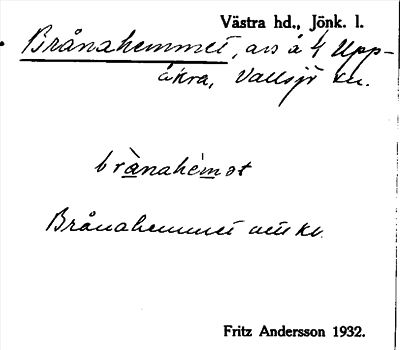 Västra hd., Jönk. l.
Brånahemmet, avs å 4 Upp-
åkra, Vallsjö sn.
brànahèmət
Brånahemmet
Fritz Andersson 1932.